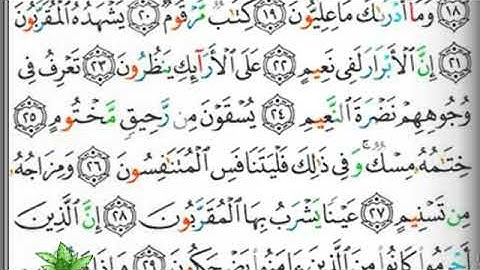 ١٨ وَمَآ أَدْرَىٰكَ مَا عِلِّيُّونَ ١٩ كِتَٰبٌ مَّرْقُومٌ ٢٠ يَشْهَدُهُ ٱلْمُقَرَّبُونَ
٢١ إِنَّ ٱلْأَبْرَارَ لَفِى نَعِيمٍ ٢٢ عَلَى ٱلْأَرَآئِكِ يَنظُرُونَ ٢٣ تَعْرِفُ فِى
وُجُوهِهِمْ نَضْرَةَ ٱلنَّعِيمِ ٢٤ يُسْقَوْنَ مِن رَّحِيقٍ مَّخْتُومٍ ٢٥
خِتَٰمُهُۥ مِسْكٌ ۚ وَفِى ذَٰلِكَ فَلْيَتَنَافَسِ ٱلْمُتَنَٰفِسُونَ ٢٦ وَمِزَاجُهُۥ
مِن تَسْنِيمٍ ٢٧ عَيْنًا يَشْرَبُ بِهَا ٱلْمُقَرَّبُونَ ٢٨ إِنَّ ٱلَّذِينَ
أَجْرَمُوا۟ كَانُوا۟ مِنَ ٱلَّذِينَ ءَامَنُوا۟ يَضْحَكُونَ ٢٩ وَإِذَا